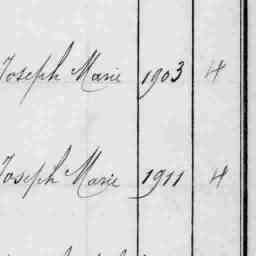 Joseph Marie 1903 4
Joseph Marie 1911 4